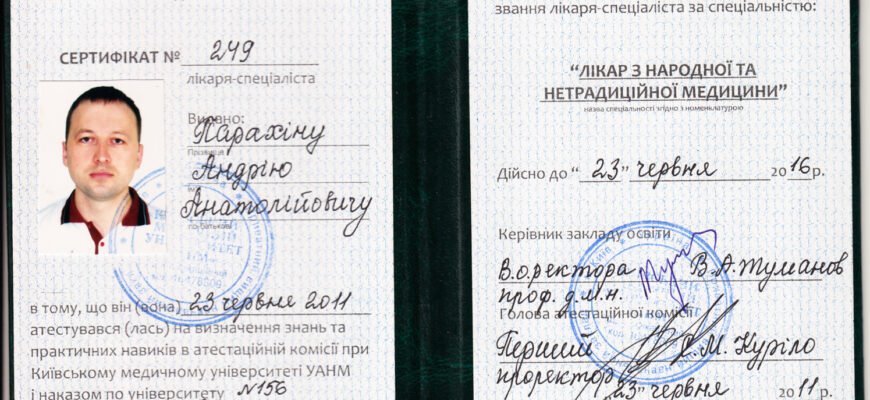 СЕРТИФІКАТ № 249
лікаря-спеціаліста
Видано:
Парахіну
Прізвище
Андрію
Анатолійовичу
по батькові
в тому, що він (вона) 23 червня 2011
атестувався (лась) на визначення знань та
практичних навиків в атестаційній комісії при
Київському медичному університеті УАНМ
і наказом по університету №156
звання лікаря-спеціаліста за спеціальністю:
“ЛІКАР З НАРОДНОЇ ТА
НЕТРАДИЦІЙНОЇ МЕДИЦИНИ”
назва спеціальності згідно з номенклатурою
Дійсно до “ 23 ” червня 2016 р.
Керівник закладу освіти
В.о.ректора В.А.Туманов
проф. д.м.н.
Голова атестаційної комісії
Перший Є.М. Куріло
проректор
“23” червня 2011 р.